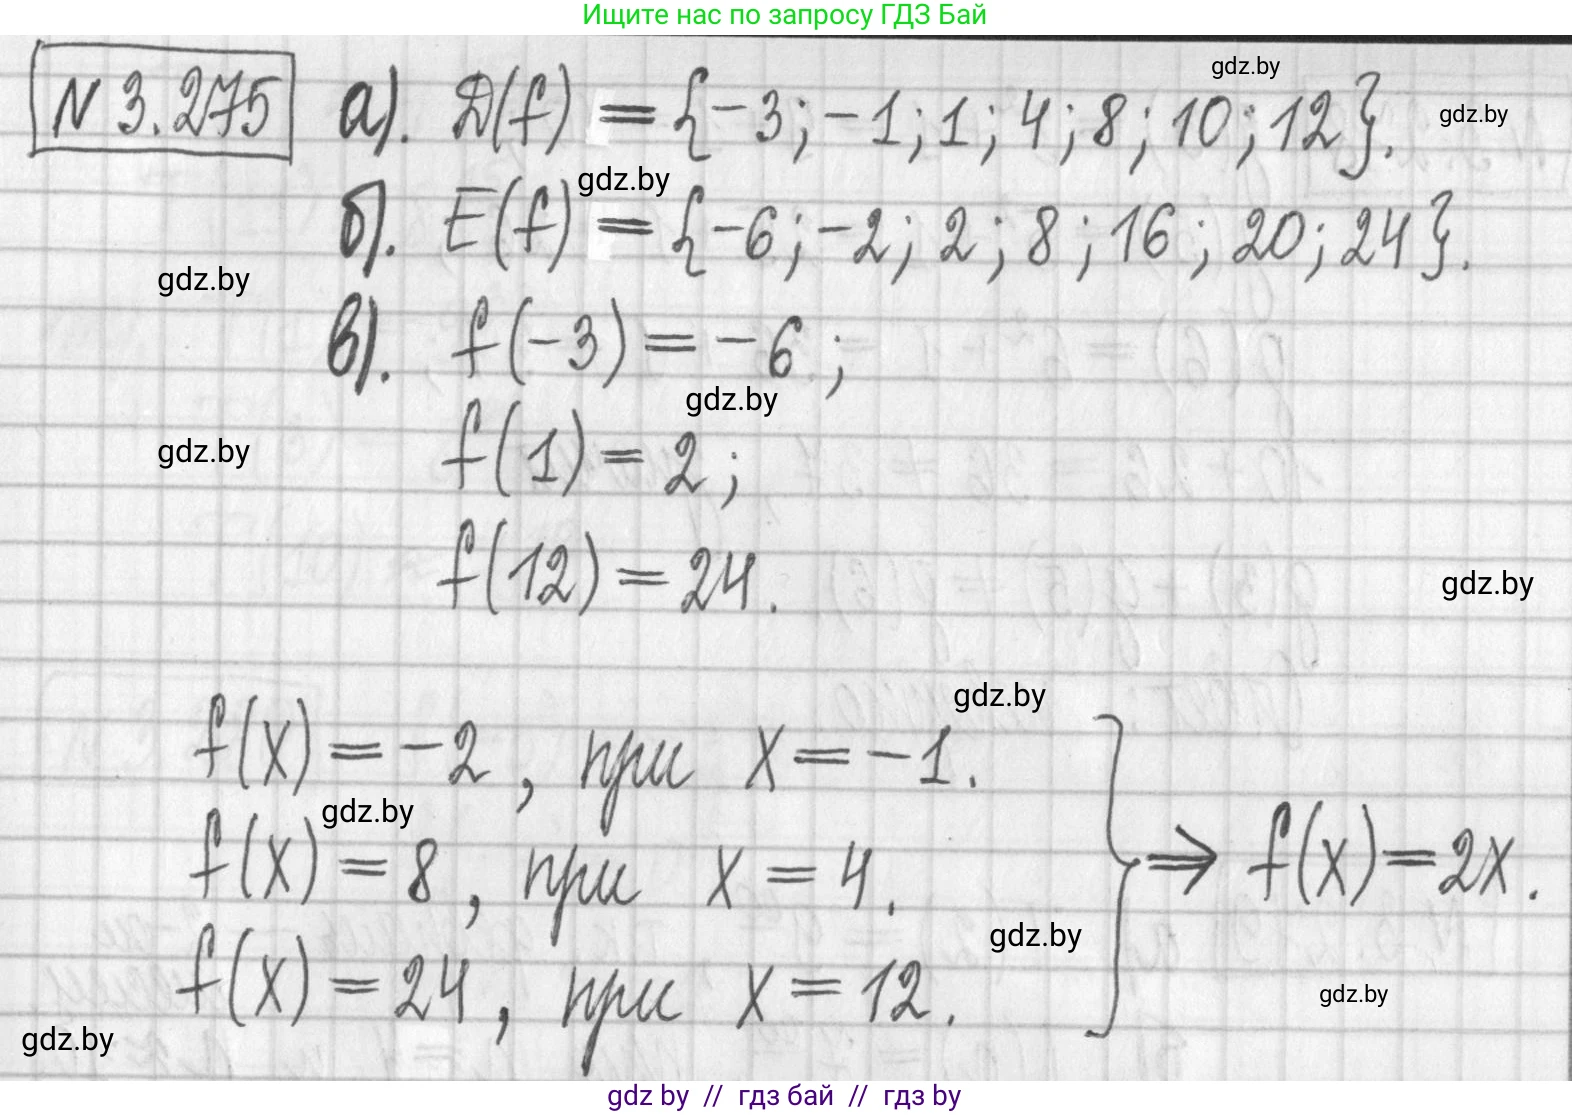 Ищите нас по запросу ГДЗ Бай
N 3.275 а). D(f) = {-3; -1; 1; 4; 8; 10; 12}.
gdz.by
gdz.by
gdz.by
б). E(f) = {-6; -2; 2; 8; 16; 20; 24}.
gdz.by
в). f(-3) = -6;
gdz.by
gdz.by
f(1) = 2;
f(12) = 24.
gdz.by
gdz.by
f(x) = -2, при x = -1.
gdz.by
f(x) = 8, при x = 4. } ⇒ f(x) = 2x.
gdz.by
f(x) = 24, при x = 12.
gdz.by
gdz.by
gdz by // гдз бай // гдз by